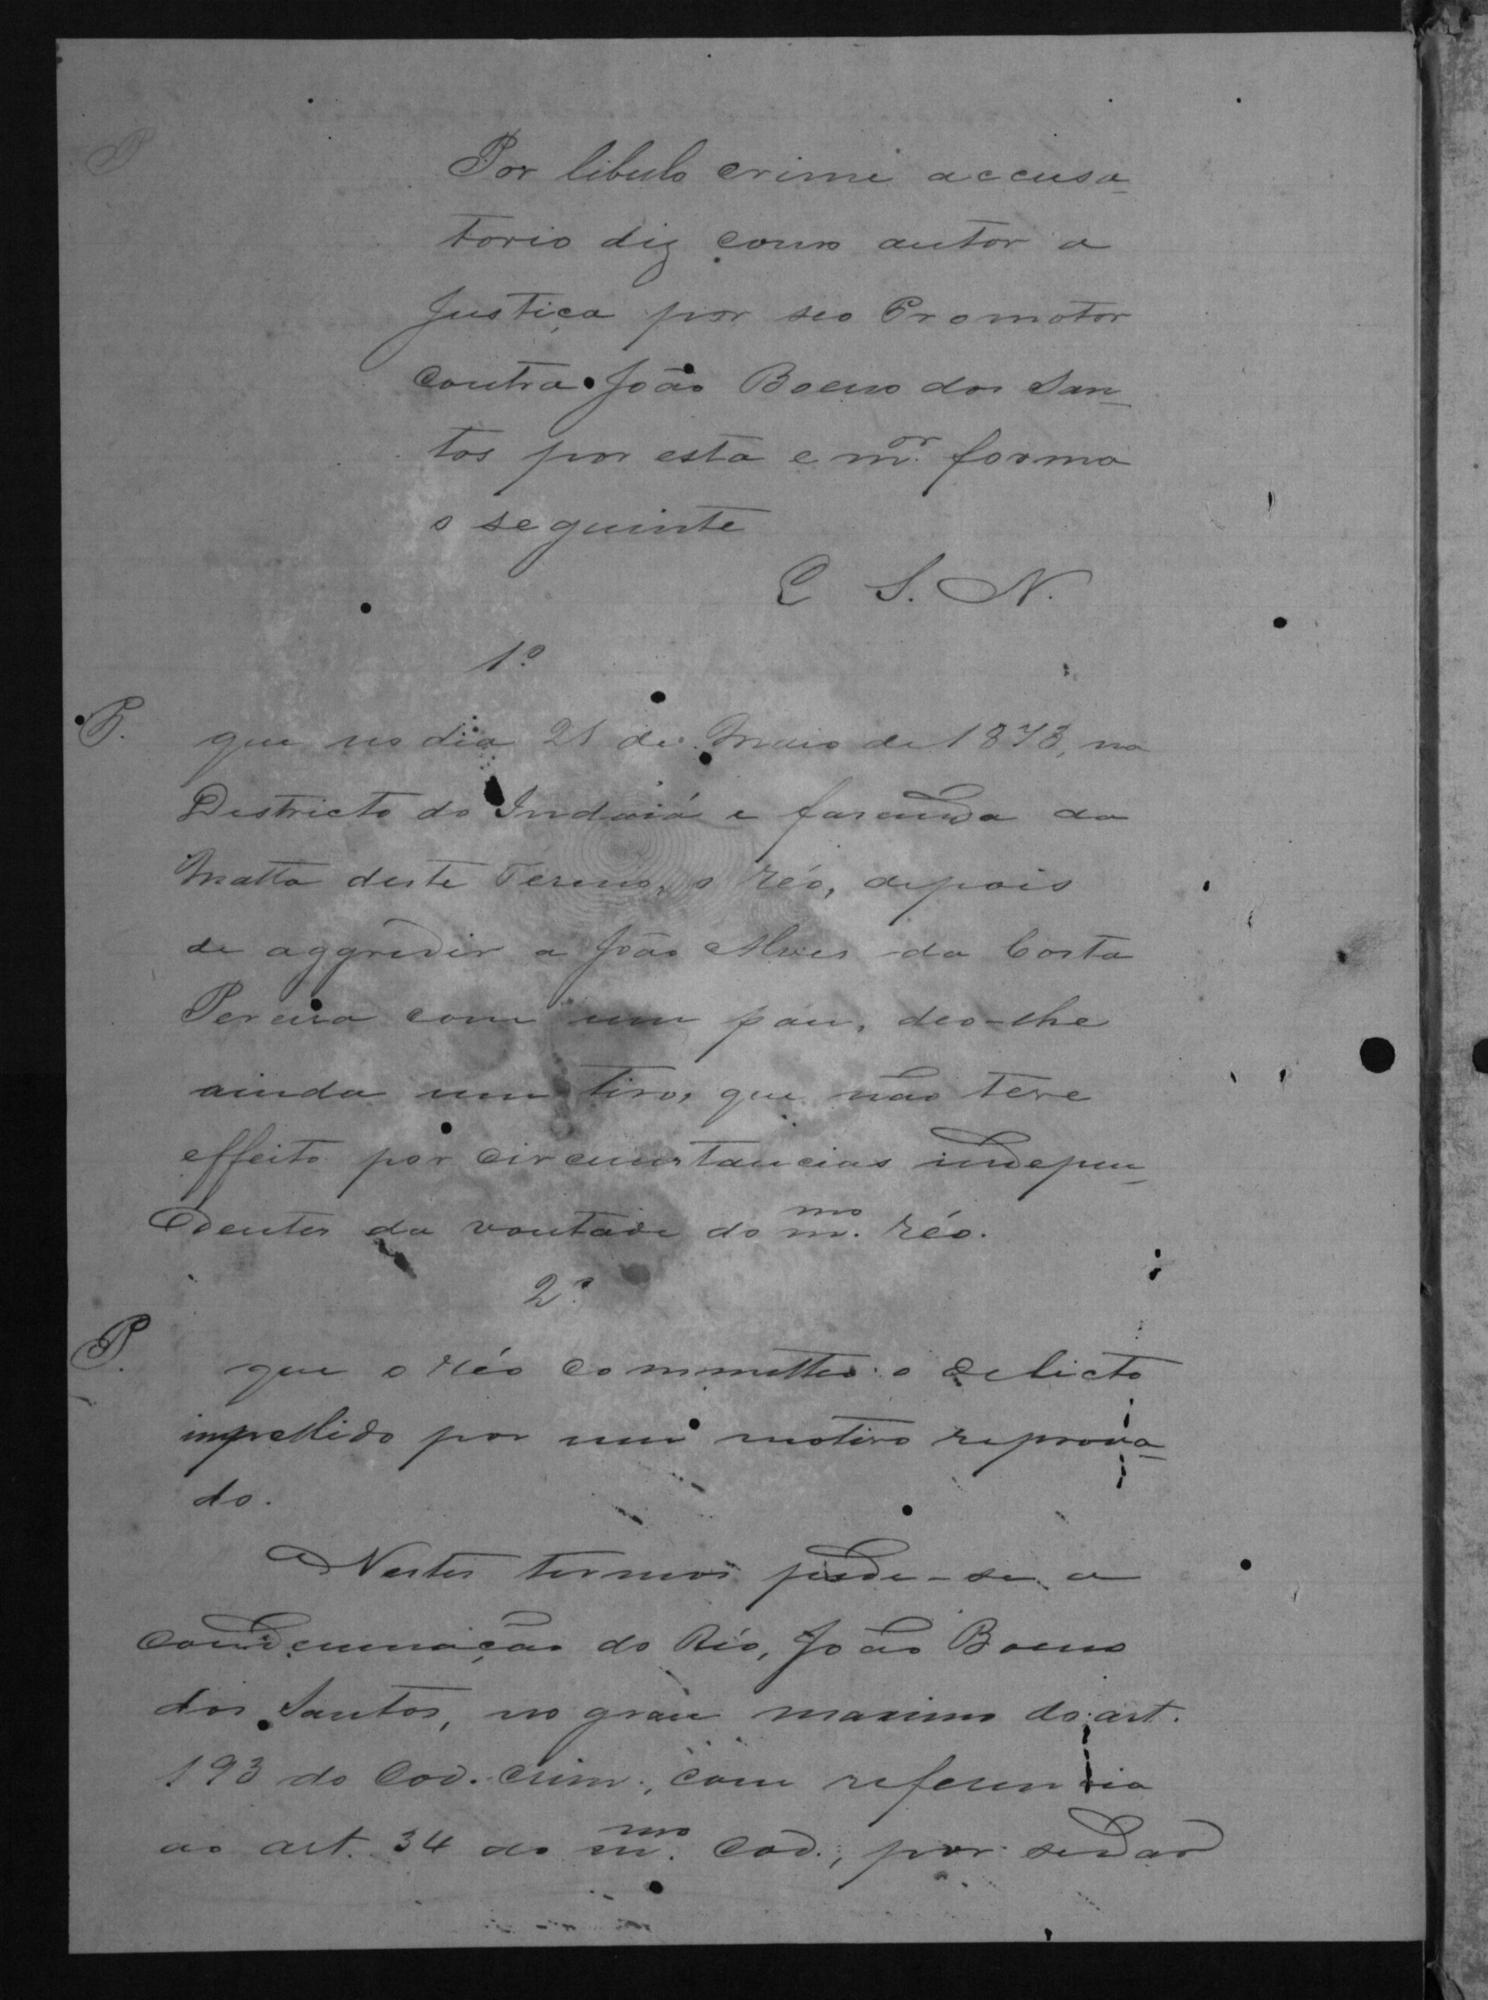 Por libelo crime accusa-
torio diz como autor a
Justiça por seo Promotor
contra João Boeno dos San-
tos por esta e m.or forma
o seguinte
E S. N.
1º
P. que no dia 21 de Maio de 1873, no
Districto do Indaiá e fasenda da
Matta deste Termo, o réo, depois
de aggredir a João Alves da Costa
Pereira com um páu, deo-lhe
ainda um tiro, que não teve
effeito por circunstancias indepen-
dentes da vontade do m.mo réo.
2º
P. que o réo commetteo o delicto
impellido por um motivo reprova-
do.
Nestes termos pede-se a
condemnação do Réo, João Boeno
dos Santos, no gráu maximo do art.
193 do Cod. Crim., com referencia
ao art. 34 do m.mo Cod., por se dar